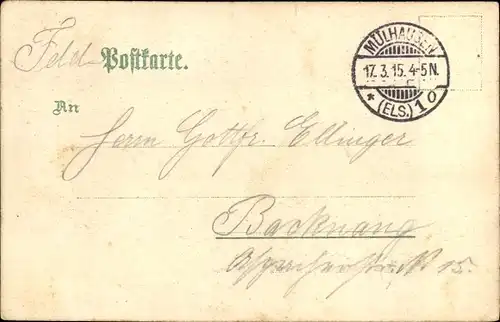 Feld Postkarte.
MÜLHAUSEN
17.3.15.4-5N.
* (ELS.) 1 o
An
Herrn Gottfr. Ellinger
Backnang
Asperacherstr. № 15.